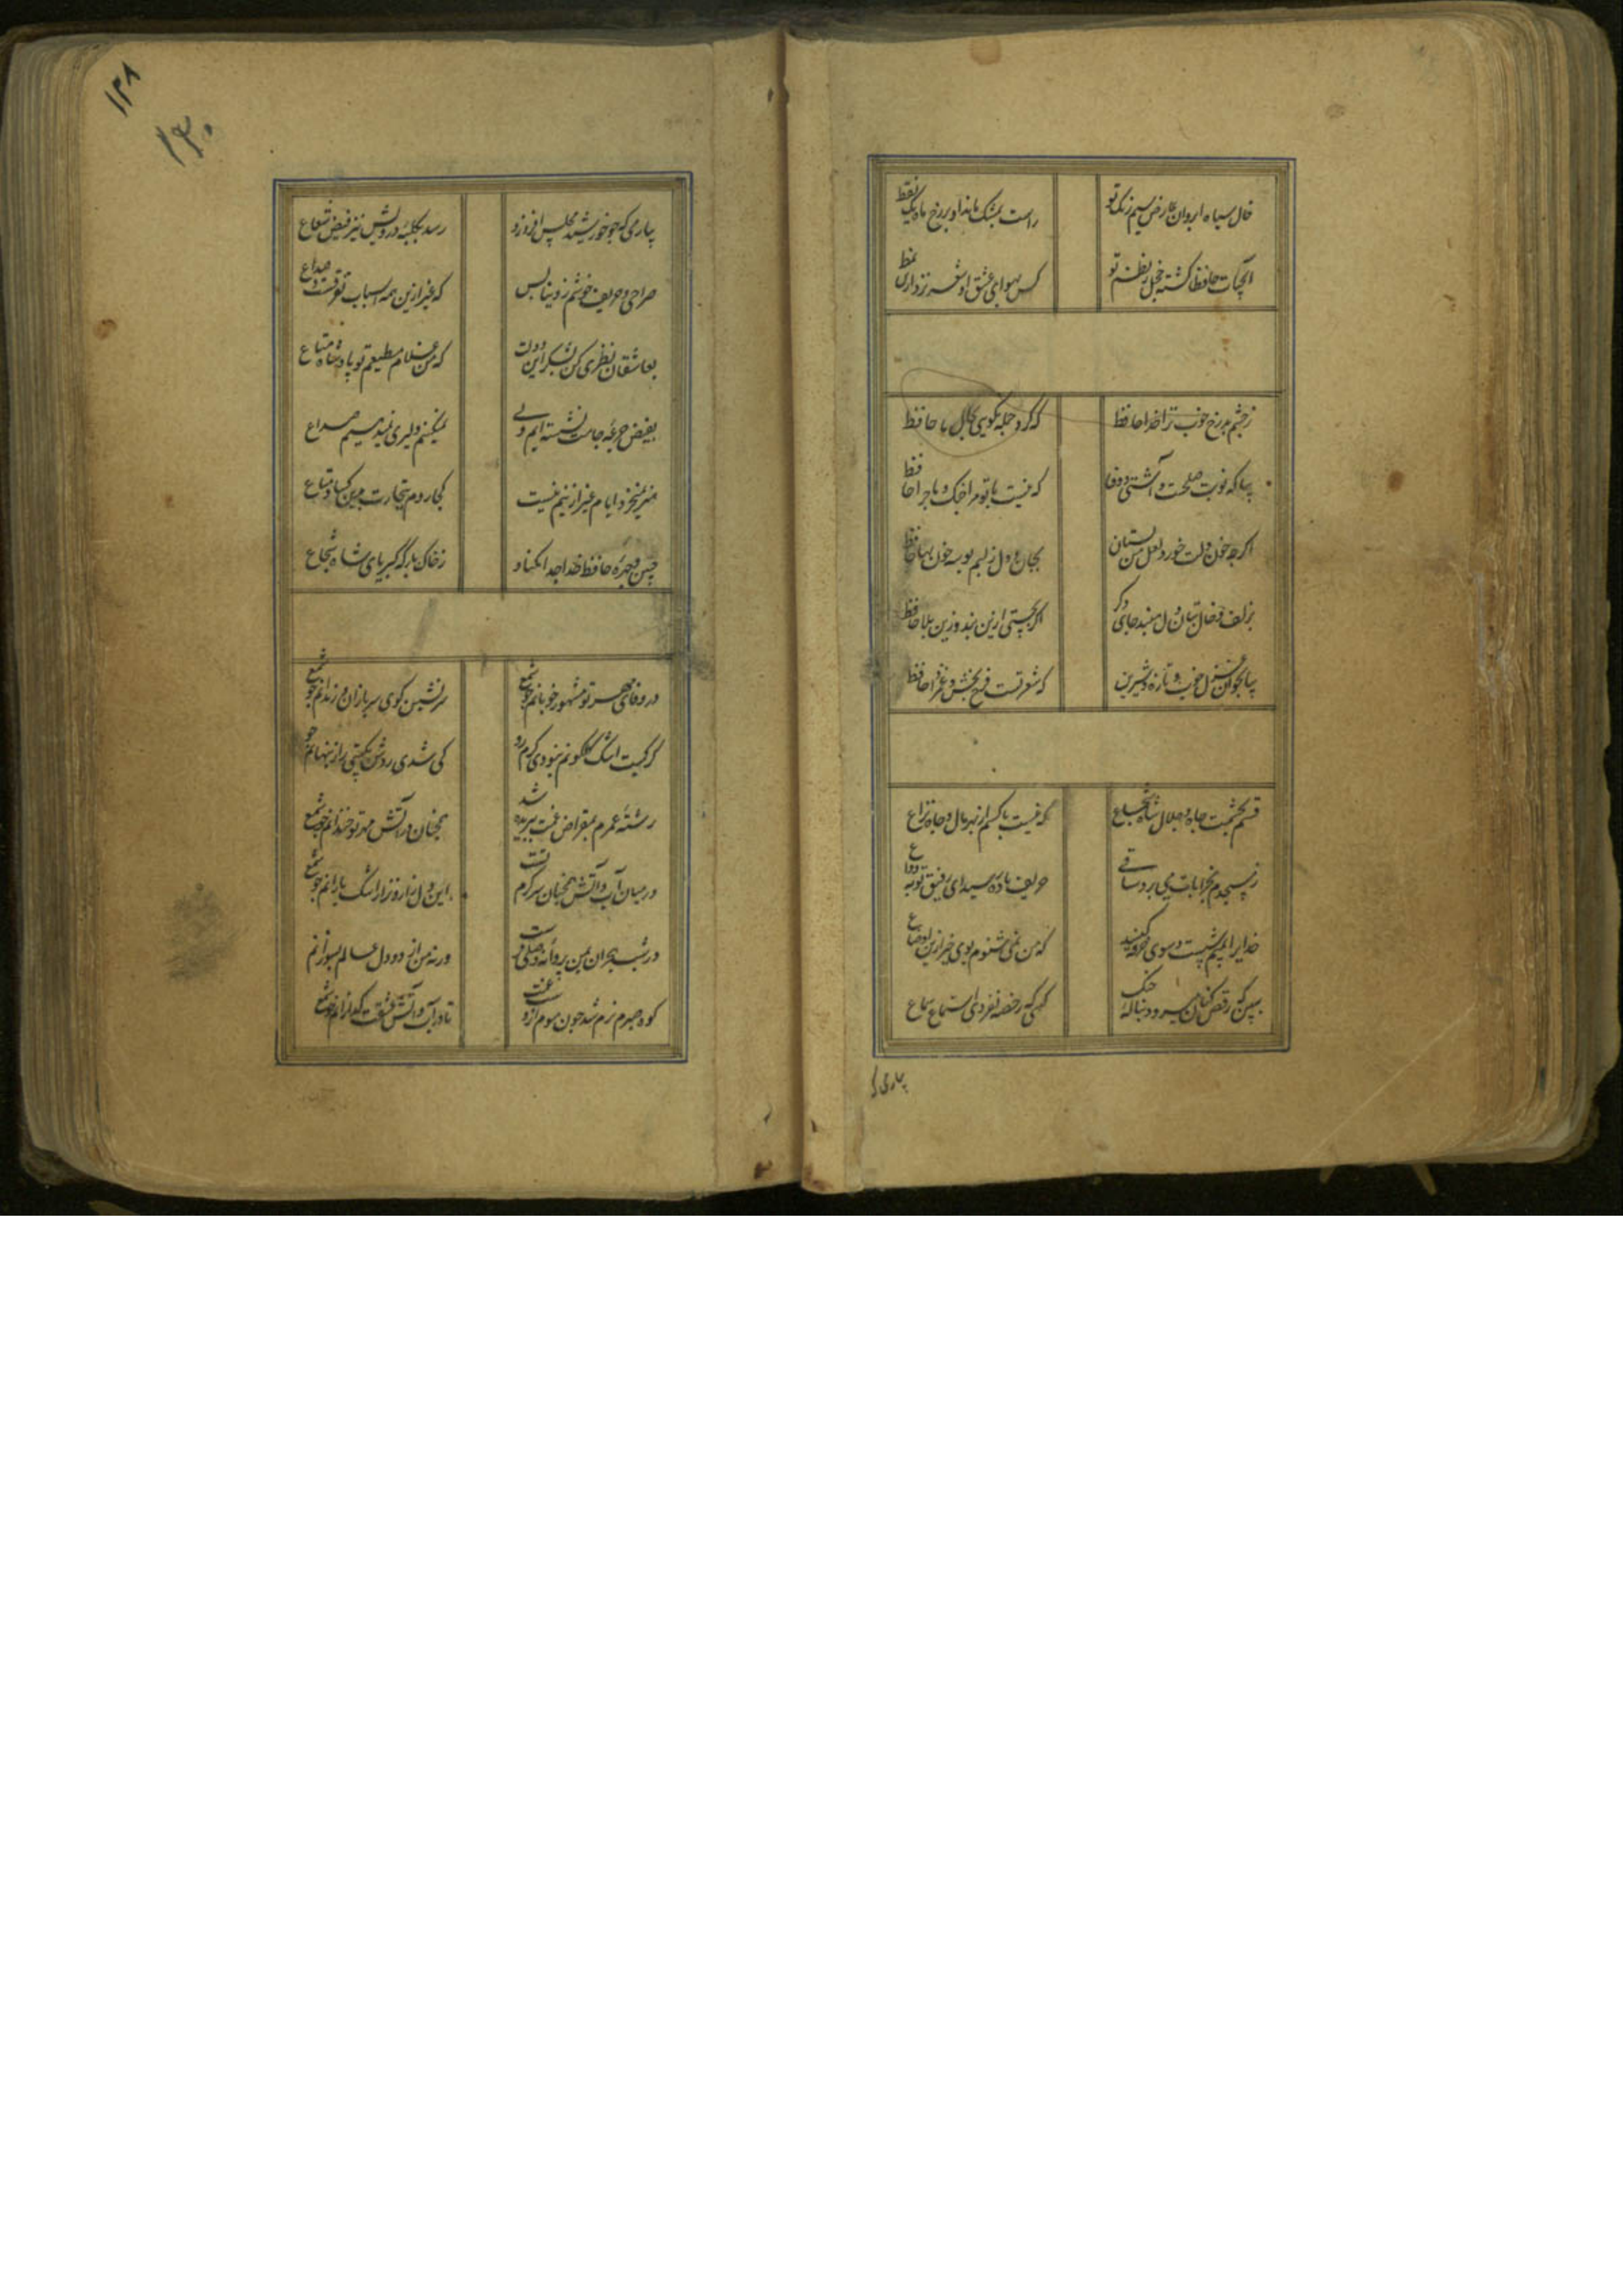 خال سیاه ابروان عارض سیم رنگ تو
راست بمشک ماند او بر رخ ماه یک نقط
آبحیات حافظا گشته خجل ز نظم تو
کس بهوای عشق او شعر نزد ازین نمط
ز چشم بد رخ خوب ترا خدا حافظ
که کرد جمله نکویی بجای ما حافظ
بیا که نوبت صلحست و آشتی و وفا
که نیست با تو مرا جنگ و ماجرا حافظ
اگرچه خون دلت خورد لعل من بستان
بجای دل ز لبم بوسه خون بها حافظ
بزلف و خال بتان دل مبند جای دگر
اگر بجستی ازین بند و زین بلا حافظ
بیا بخوان غزل خوب و تازه و شیرین
که شعر تست فرح بخش و غم زدا حافظ
قسم بحشمت و جاه و جلال شاه شجاع
که نیست با کسم از بهر مال و جاه نزاع
ز مسجدم بخرابات می برد ساقی
حریف باده رسید ای رفیق توبه وداع
خدایرا بمیم شست و شوی خرقه کنید
که من نمی شنوم بوی خیر ازین اوضاع
ببین که رقص کنان میرود بناله چنک
کسی که رخصه نفرمودی استماع سماع
بیاری که
۱۲۸
۱۳۰
بیار می که چو خورشید مجلس افروزد
رسد بکلبه درویش نیز فیض شعاع
صراحی و حریف خوشم ز دنیا بس
که غیر ازین همه اسباب تفرقست و صداع
بعاشقان نظری کن بشکر این دولت
که من غلام مطیعم تو پادشاه مطاع
بفیض جرعه جام تشنه ایم ولی
نمیکنیم دلیری نمیدهیم صداع
هنر نمیخرد ایام غیر ازینم نیست
کجا روم بتجارت بدین کساد متاع
جبین و چهره حافظ خدا جدا مکناد
ز خاک بارگه کبریای شاه شجاع
در وفای مهر تو مشهور خوبانم چو شمع
شب نشین کوی سربازان و رندانم چو شمع
گر کمیت اشک گلگونم نبودی گرم رو
کی شدی روشن بگیتی راز پنهانم چو
رشته عمرم بمقراض غمت ببریده شد
همچنان در آتش مهر تو خندانم چو شمع
در میان آب و آتش همچنان سرگرم تست
این دل زار و نزار اشک بارانم چو شمع
در شب هجران بمن پروانه وصلی فرست
ورنه من از دود دل عالم بسوزانم
کوه صبرم نرم شد چون موم از دست غمت
تا در آب و آتش عشقت گدازانم چو شمع